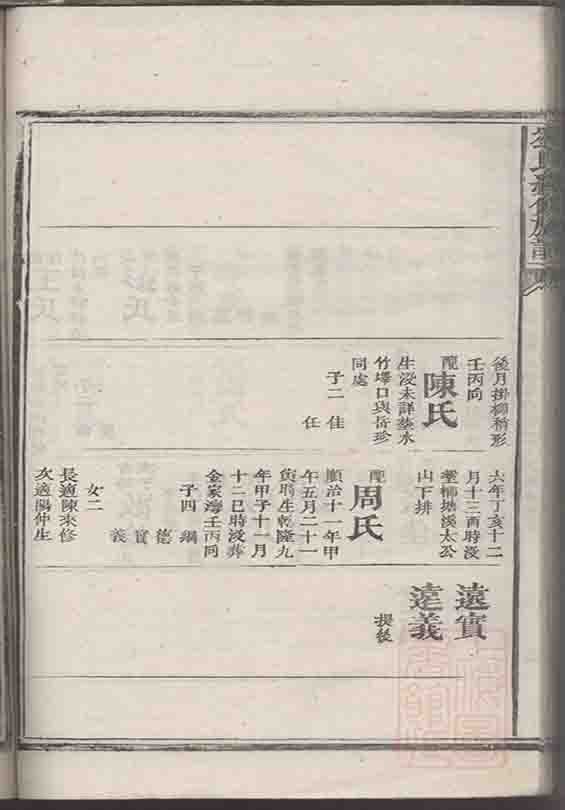 後月掛柳梢形
壬丙向
配
陳氏
生沒未詳葬水
竹墿口與岳珍
同處
子二 佳
任
六年丁亥十二
月十三酉時沒
葬柳塘溪太公
山下排
配
周氏
順治十一年甲
午五月二十一
寅時生乾隆九
年甲子十一月
十二巳時沒葬
金家灣壬丙向
子四 綱
德
實
義
女二
長適陳來修
次適陽仲生
遠實
遠義
提後